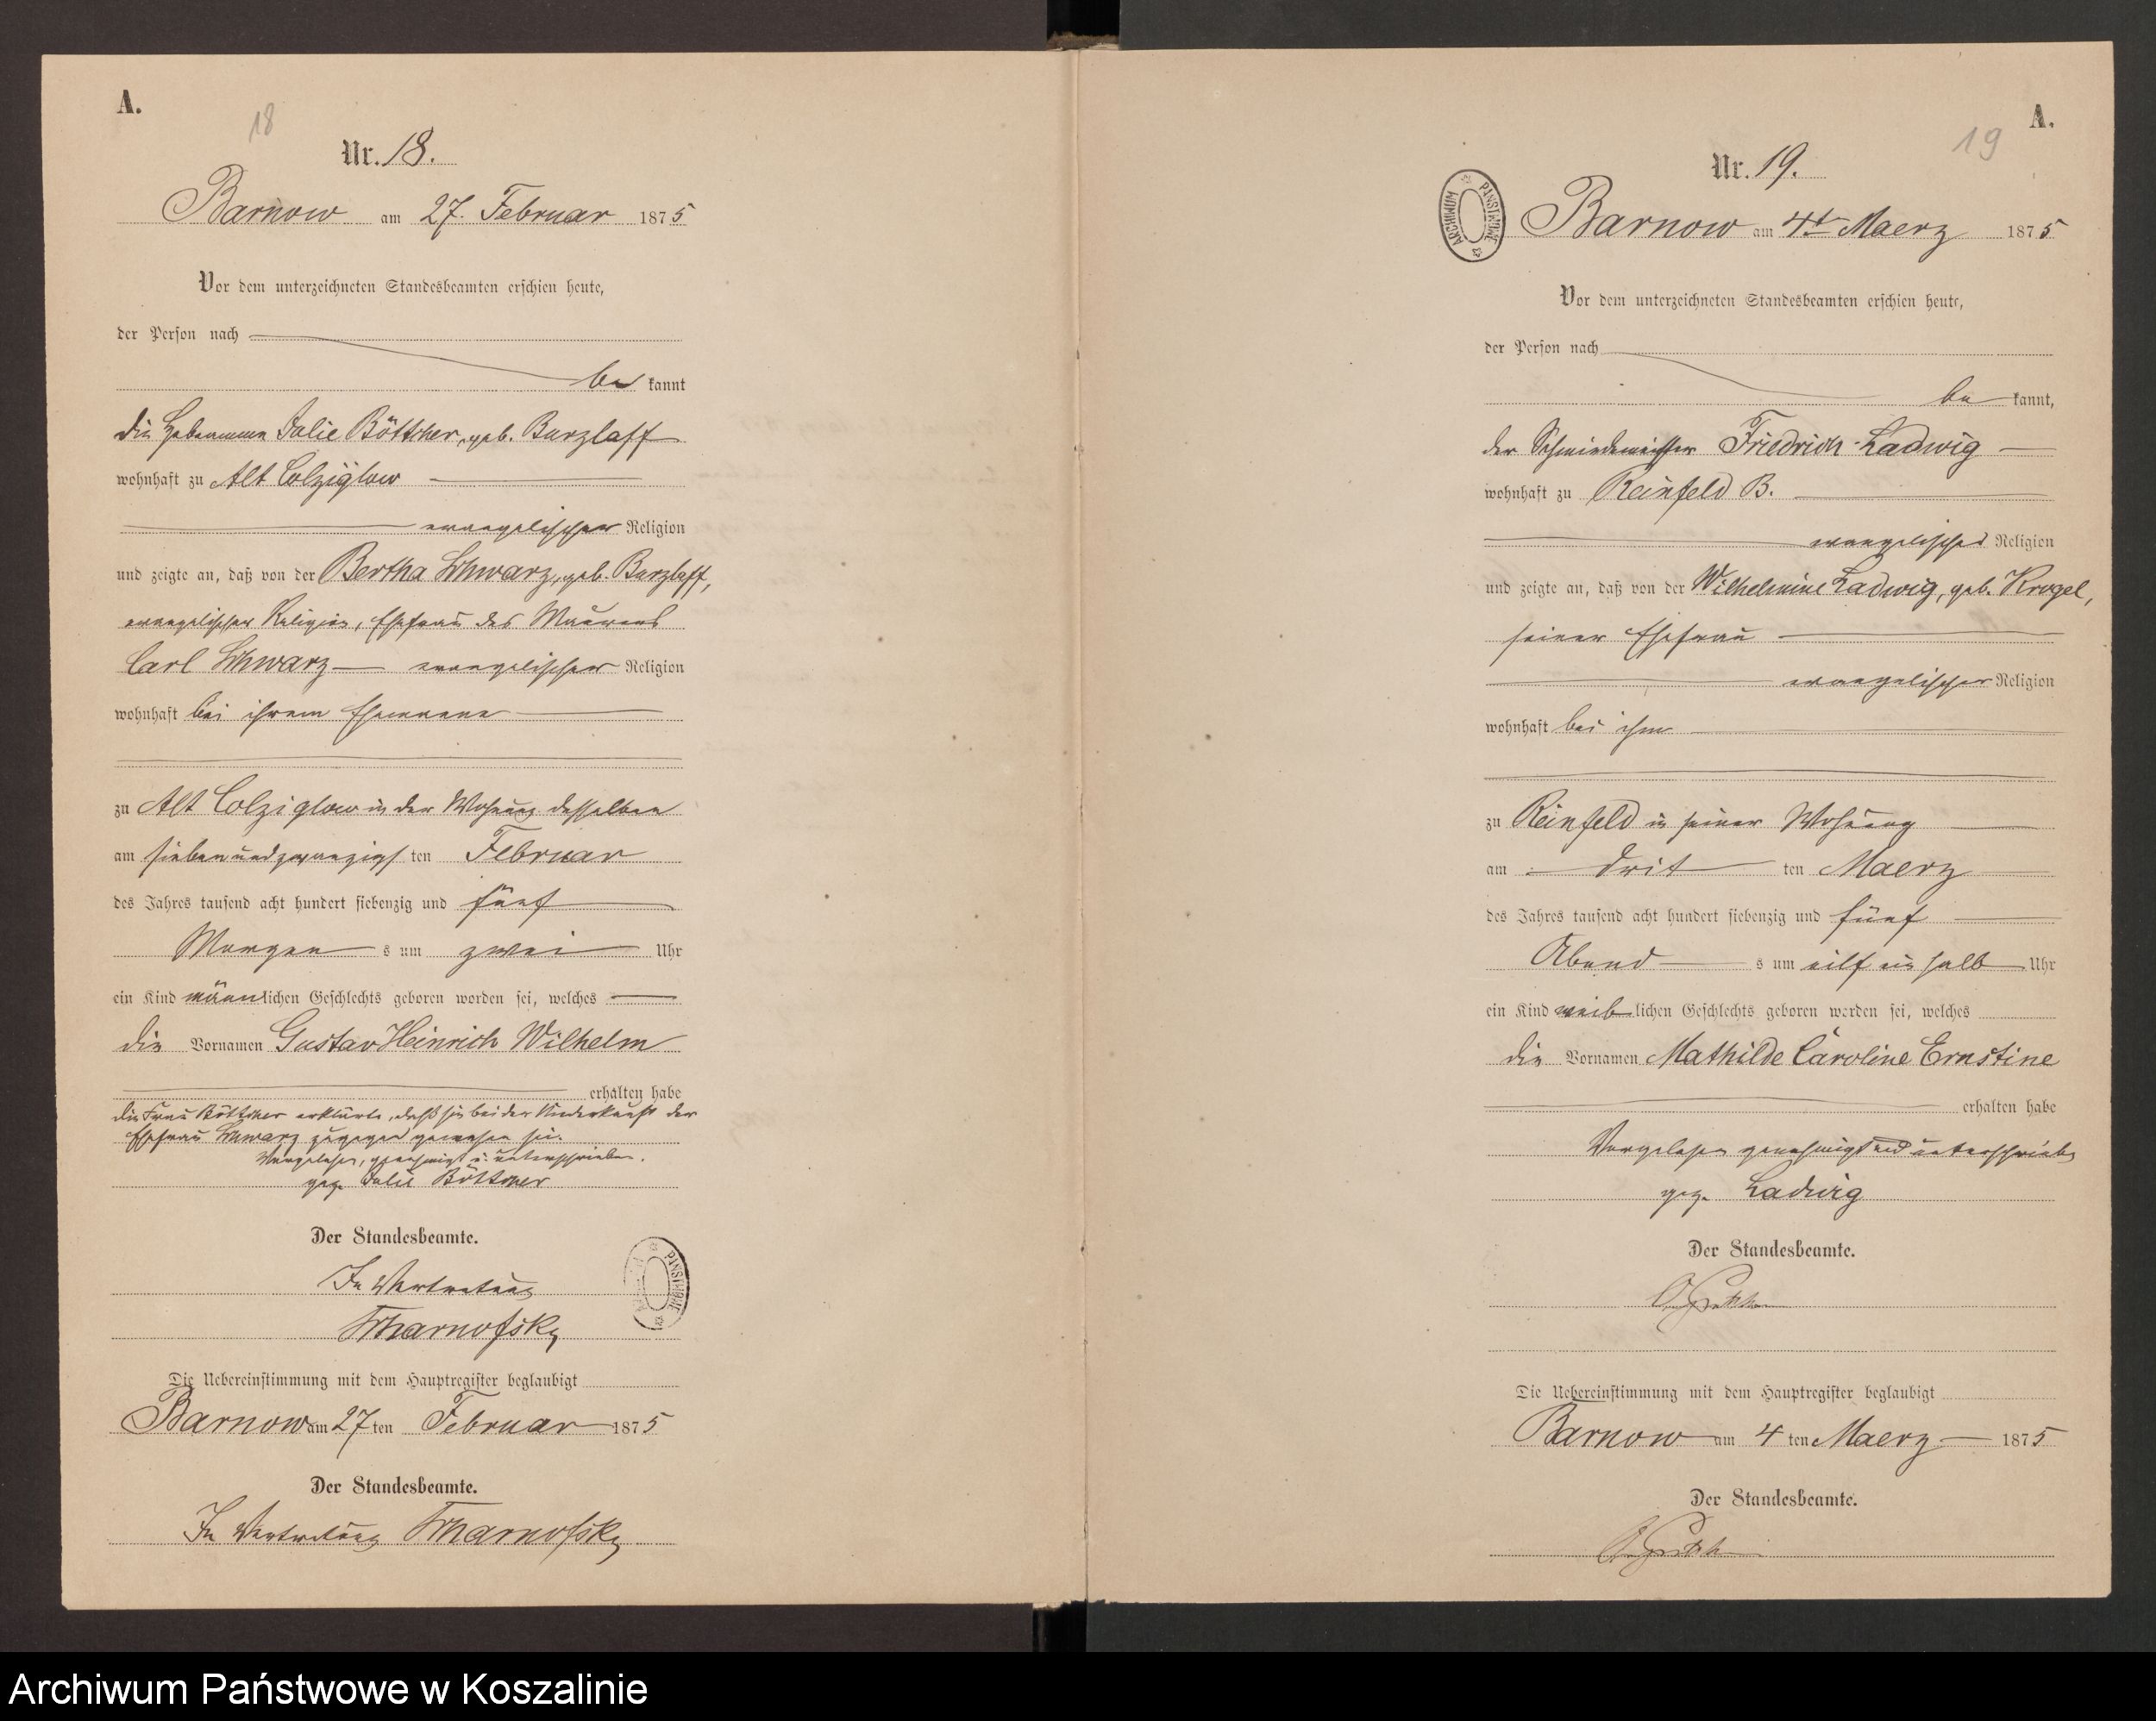 A.
18
Nr. 18.
Barnow am 27. Februar 1875
Vor dem unterzeichneten Standesbeamten erschien heute,
der Person nach
be kannt
die Hebamme Julie Böttcher, geb. Burzlaff
wohnhaft zu Alt Colziglow
evangelischer Religion
und zeigte an, daß von der Bertha Schwarz, geb. Burzlaff,
evangelischer Religion, Ehefrau des Maurers
Carl Schwarz evangelischer Religion
wohnhaft bei ihrem Ehemanne
zu Alt Colziglow in der Wohnung desselben
am siebenundzwanzigs ten Februar
des Jahres tausend acht hundert siebenzig und fünf
Morgen s um zwei Uhr
ein Kind männlichen Geschlechts geboren worden sei, welches
die Vornamen Gustav Heinrich Wilhelm
erhalten habe
die Frau Böttcher erklärte, daß sie bei der Niederkunft der
Ehefrau Schwarz zugegen gewesen sei.
Vorgelesen, genehmigt u. unterschrieben.
gez. Julie Böttcher
Der Standesbeamte.
In Vertretung
Scharnofsky
Die Uebereinstimmung mit dem Hauptregister beglaubigt
Barnow am 27 ten Februar 1875
Der Standesbeamte.
In Vertretung Scharnofsky
A.
19
Nr. 19.
ARCHIWUM PAŃSTWOWE
Barnow am 4t Maerz 1875
Vor dem unterzeichneten Standesbeamten erschien heute,
der Person nach
be kannt,
der Schmiedemeister Friedrich Ladwig
wohnhaft zu Reinfeld B.
evangelischer Religion
und zeigte an, daß von der Wilhelmine Ladwig, geb. Krogel,
seiner Ehefrau
evangelischer Religion
wohnhaft bei ihm
zu Reinfeld in seiner Wohnung
am drit ten Maerz
des Jahres tausend acht hundert siebenzig und fünf
Abend s um eilf ein halb Uhr
ein Kind weiblichen Geschlechts geboren worden sei, welches
die Vornamen Mathilde Caroline Ernstine
erhalten habe
Vorgelesen genehmigt und unterschrieben
gez. Ladwig
Der Standesbeamte.
Die Uebereinstimmung mit dem Hauptregister beglaubigt
Barnow am 4 ten Maerz 1875
Der Standesbeamte.
Archiwum Państwowe w Koszalinie